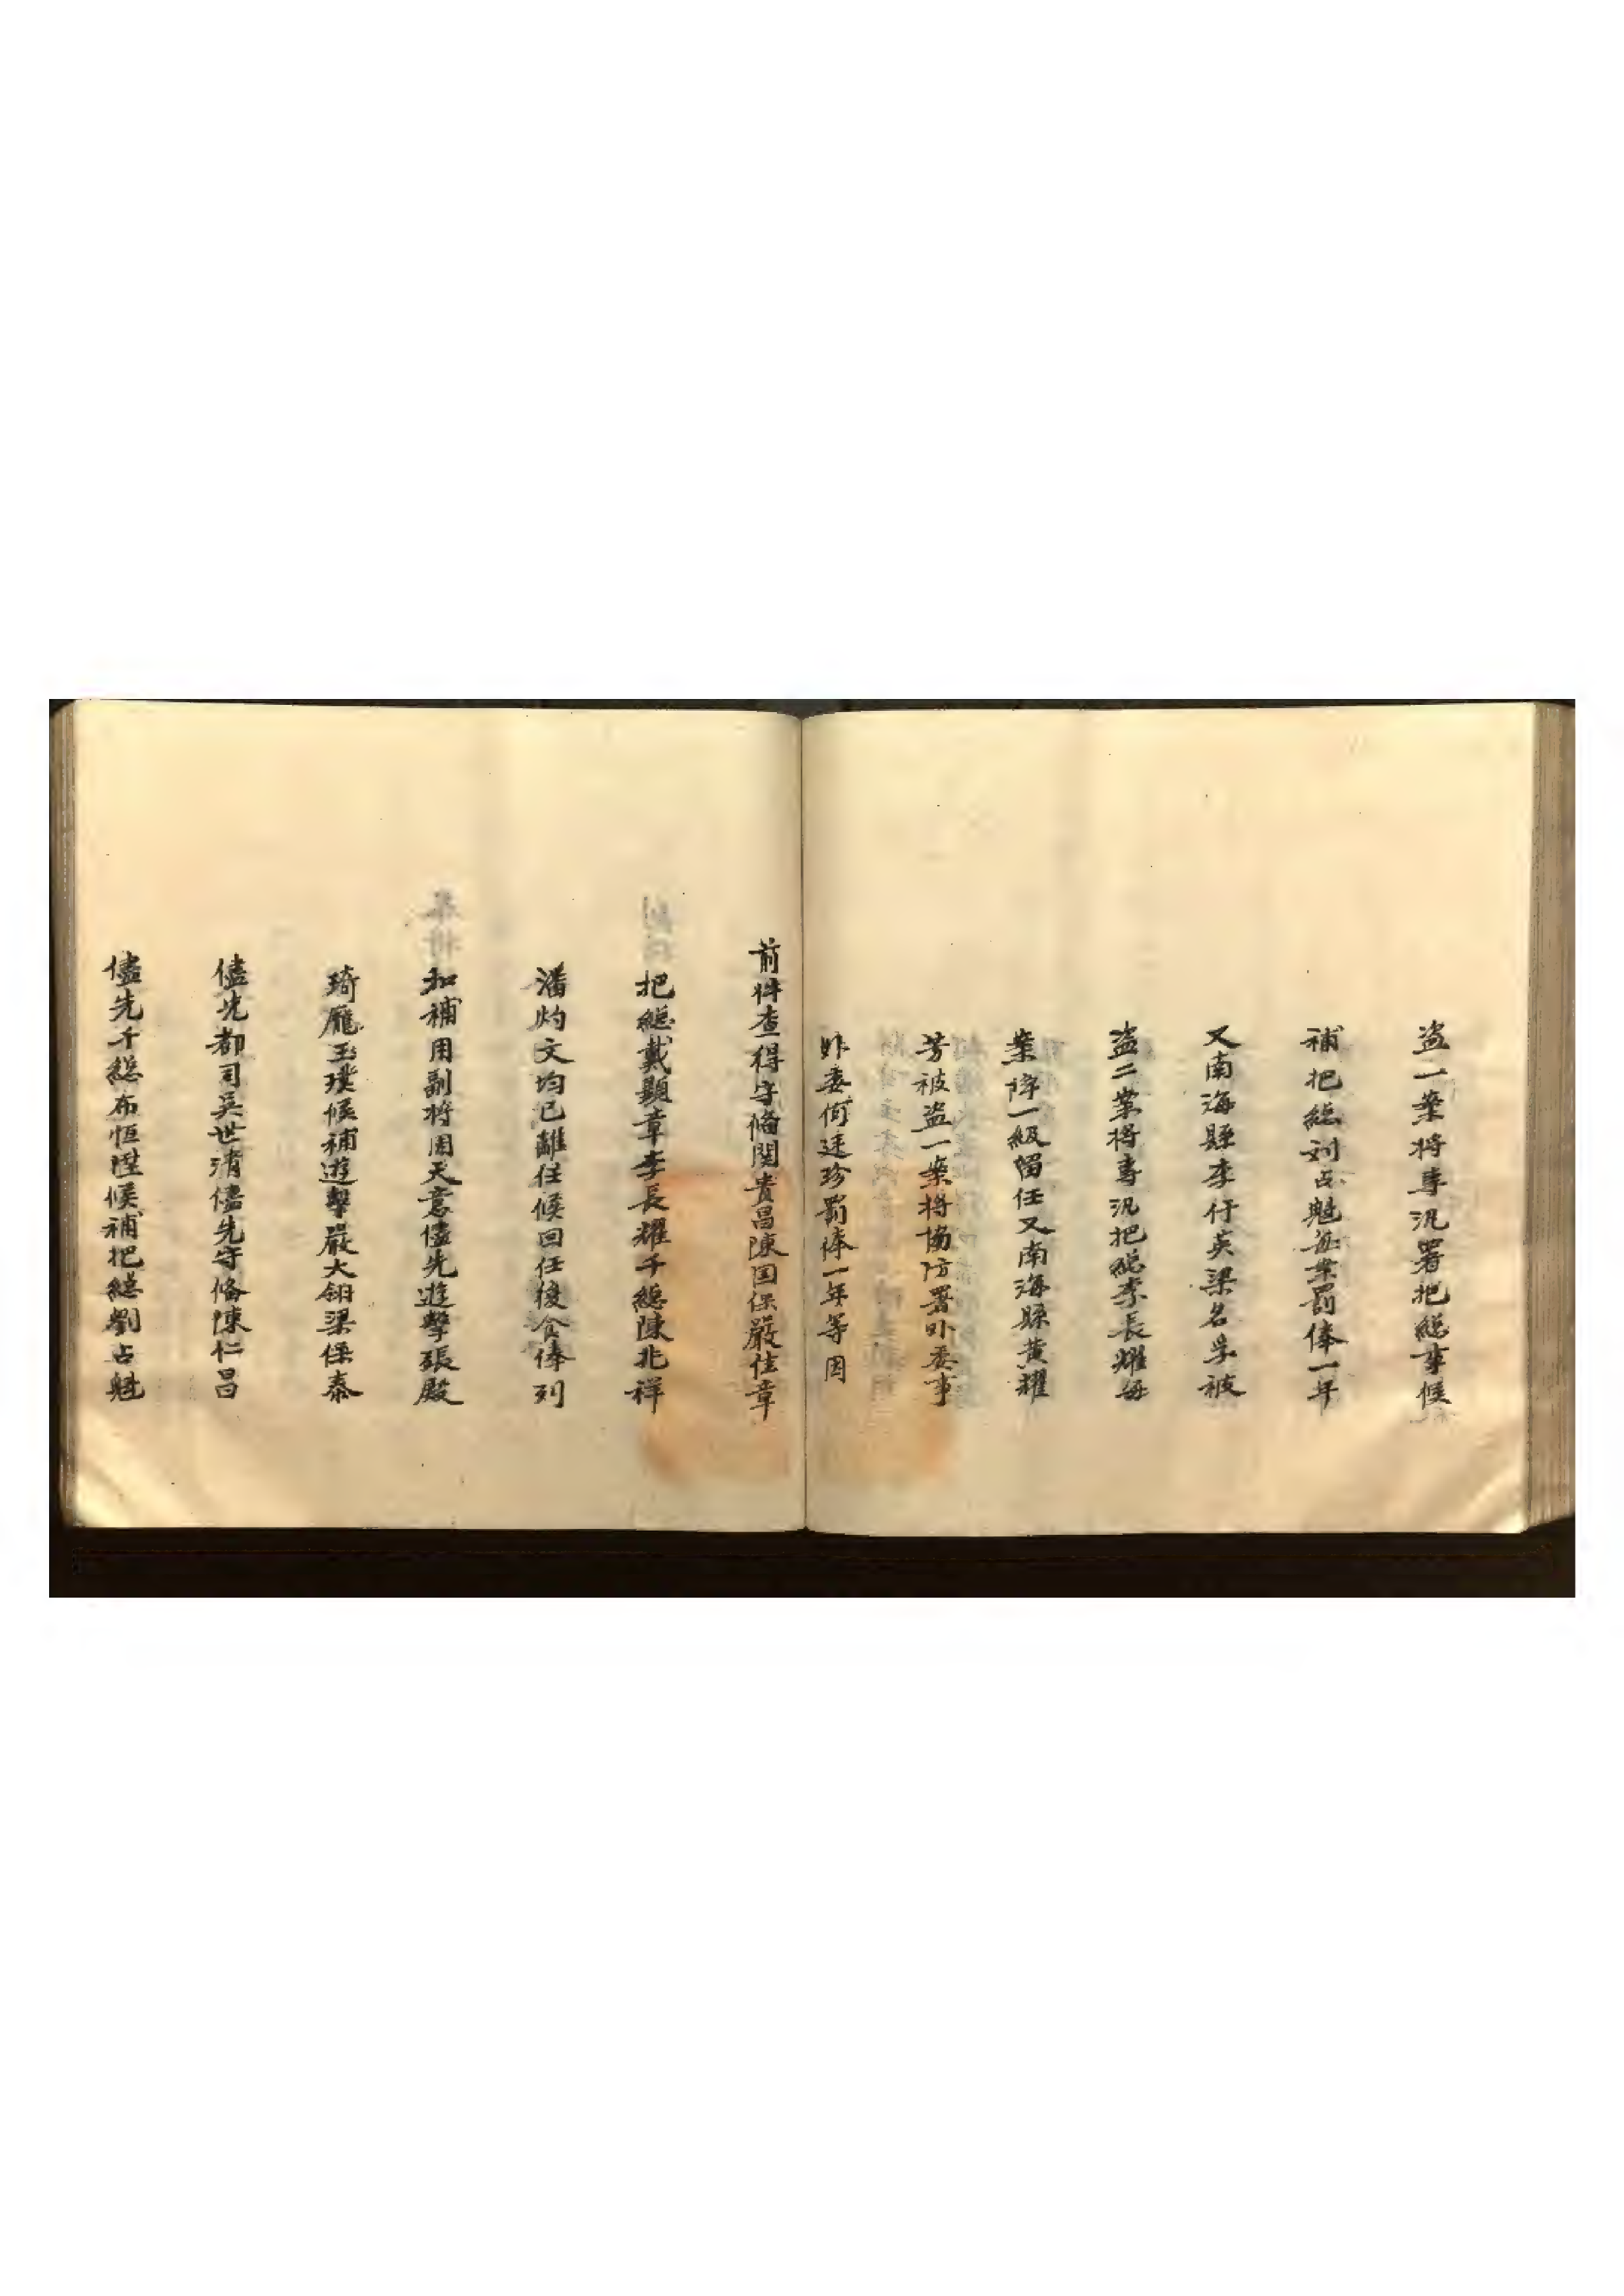 盗一案将專汛署把緫事候
補把緫刘占魁每案罰俸一年
又南海縣李行英梁名孚被
盗二案将專汛把緫李長耀每
案降一級留任又南海縣黄耀
芳被盗一案将協防署外委事
外委何廷珍罰俸一年等因
前件查得守俻関貴昌陳囯保嚴佳章
把緫戴顯章李長耀千緫陳兆祥
潘灼文均已離任候回任後食俸列
和補用副将周天意儘先遊擊張殿
琦龎玉璞候補遊擊嚴大翎梁保泰
儘先都司吴世清儘先守俻陳仁昌
儘先千緫布恒陞候補把緫劉占魁